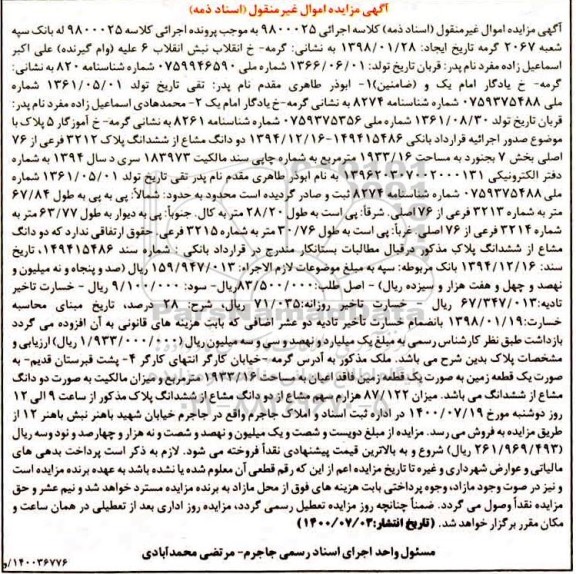 آگهی مزایده اموال غیرمنقول (اسناد ذمه)
آگهی مزایده اموال غیرمنقول (اسناد ذمه) کلاسه اجرائی ۹۸۰۰۰۲۵ به موجب پرونده اجرائی کلاسه ۹۸۰۰۰۲۵ له بانک سپه
شعبه ۲۰۶۷ گرمه تاریخ ایجاد: ۱۳۹۸/۰۱/۲۸ به نشانی: گرمه- خ انقلاب نبش انقلاب ۶ علیه (وام گیرنده) علی اکبر
اسماعیل زاده مفرد نام پدر: قربان تاریخ تولد: ۱۳۶۶/۰۶/۰۱ شماره ملی ۰۷۵۹۹۴۶۵۹۰ شماره شناسنامه ۸۲۰ به نشانی:
گرمه- خ یادگار امام یک و (ضامنین) ۱- ابوذر طاهری مقدم نام پدر: تقی تاریخ تولد ۱۳۶۱/۰۵/۰۱ شماره
ملی ۰۷۵۹۳۷۵۴۸۸ شماره شناسنامه ۸۲۷۴ به نشانی گرمه-خ یادگار امام یک ۲- محمدهادی اسماعیل زاده مفرد نام پدر:
قربان تاریخ تولد ۱۳۶۱/۰۸/۳۰ شماره ملی ۰۷۵۹۳۷۵۳۵۶ شماره شناسنامه ۸۲۶۱ به نشانی گرمه- خ آموزگار ۵ پلاک با
موضوع صدور اجرائیه قرارداد بانکی ۱۴۹۴۱۵۴۸۶-۱۳۹۴/۱۲/۱۶ دو دانگ مشاع از ششدانگ پلاک ۳۲۱۲ فرعی از ۷۶
اصلی بخش ۷ بجنورد به مساحت ۱۹۳۳/۱۶ مترمربع به شماره چاپی سند مالکیت ۱۸۳۹۷۳ سری د سال ۱۳۹۴ به شماره
دفتر الکترونیکی ۱۳۹۶۲۰۳۰۷۰۰۲۰۰۰۱۳۱ به نام ابوذر طاهری مقدم نام پدر تقی تاریخ تولد ۱۳۶۱/۰۵/۰۱ شماره
ملی ۰۷۵۹۳۷۵۴۸۸ شماره شناسنامه ۸۲۷۴ ثبت و صادر گردیده است محدود به حدود: شمالاً: پی به پی به طول ۶۷/۸۴
متر به شماره ۳۲۱۳ فرعی از ۷۶ اصلی. شرقاً: پی است به طول ۲۸/۲۰ متر به کال. جنوباً: پی به دیوار به طول ۶۳/۷۷ متر به
شماره ۳۲۱۴ فرعی از ۷۶ اصلی. غرباً: پی است به طول ۳۰/۷۶ متر به شماره ۳۲۱۵ فرعی. حقوق ارتفاقی ندارد که دو دانگ
مشاع از ششدانگ پلاک مذکور درقبال مطالبات بستانکار مندرج در قرارداد بانکی : شماره سند ۱۴۹۴۱۵۴۸۶، تاریخ
سند: ۱۳۹۴/۱۲/۱۶ بانک مربوطه: سپه به مبلغ موضوعات لازم الاجراء: ۱۵۹/۹۴۷/۰۱۳ ریال (صد و پنجاه و نه میلیون و
نهصد و چهل و هفت هزار و سیزده ریال) - اصل طلب: ۸۳/۵۰۰/۰۰۰ریال- سود: ۹/۱۰۰/۰۰۰ ریال - خسارت تاخیر
تادیه:۶۷/۳۴۷/۰۱۳ ریال - خسارت تاخیر روزانه:۷۱/۰۳۵ ریال، شرح: ۲۸ درصد، تاریخ مبنای محاسبه
خسارت:۱۳۹۸/۰۱/۱۹ بانضمام خسارت تأخیر تادیه دو عشر اضافی که بابت هزینه های قانونی به آن افزوده می گردد
بازداشت طبق نظر کارشناس رسمی به مبلغ یک میلیارد و نهصد و سی و سه میلیون ریال (۱/۹۳۳/۰۰۰/۰۰۰ ریال) ارزیابی و
مشخصات پلاک بدین شرح می باشد. ملک مذکور به آدرس گرمه -خیابان کارگر انتهای کارگر ۴- پشت قبرستان قدیم- به
صورت یک قطعه زمین به صورت یک قطعه زمین فاقد اعیان به مساحت ۱۹۳۳/۱۶ مترمربع و میزان مالکیت به صورت دو دانگ
مشاع از ششدانگ می باشد. میزان ۸۷/۱۲۲ هزارم سهم مشاع از دو دانگ مشاع از ششدانگ پلاک مذکور از ساعت ۹ الی ۱۲
روز دوشنبه مورخ ۱۴۰۰/۰۷/۱۹ در اداره ثبت اسناد و املاک جاجرم واقع در جاجرم خیابان شهید باهنر نبش باهنر ۱۲ از
طریق مزایده به فروش می رسد. مزایده از مبلغ دویست و شصت و یک میلیون و نهصد و شصت و نه هزار و چهارصد و نود وسه ریال
(۲۶۱/۹۶۹/۴۹۳ ریال) شروع و به بالاترین قیمت پیشنهادی نقداً فروخته می شود. لازم به ذکر است پرداخت بدهی های
مالیاتی و عوارض شهرداری و غیره تا تاریخ مزایده اعم از این که رقم قطعی آن معلوم شده یا نشده باشد به عهده برنده مزایده است
و نیز در صورت وجود مازاد، وجوه پرداختی بابت هزینه های فوق از محل مازاد به برنده مزایده مسترد خواهد شد و نیم عشر و حق
مزایده نقداً وصول می گردد. ضمناً چنانچه روز مزایده تعطیل رسمی گردد، مزایده روز اداری بعد از تعطیلی در همان ساعت و
مکان مقرر برگزار خواهد شد. (تاریخ انتشار:۱۴۰۰/۰۷/۰۳)
مسئول واحد اجرای اسناد رسمی جاجرم- مرتضی محمدآبادی
۱۴۰۰۳۶۷۷۶/و